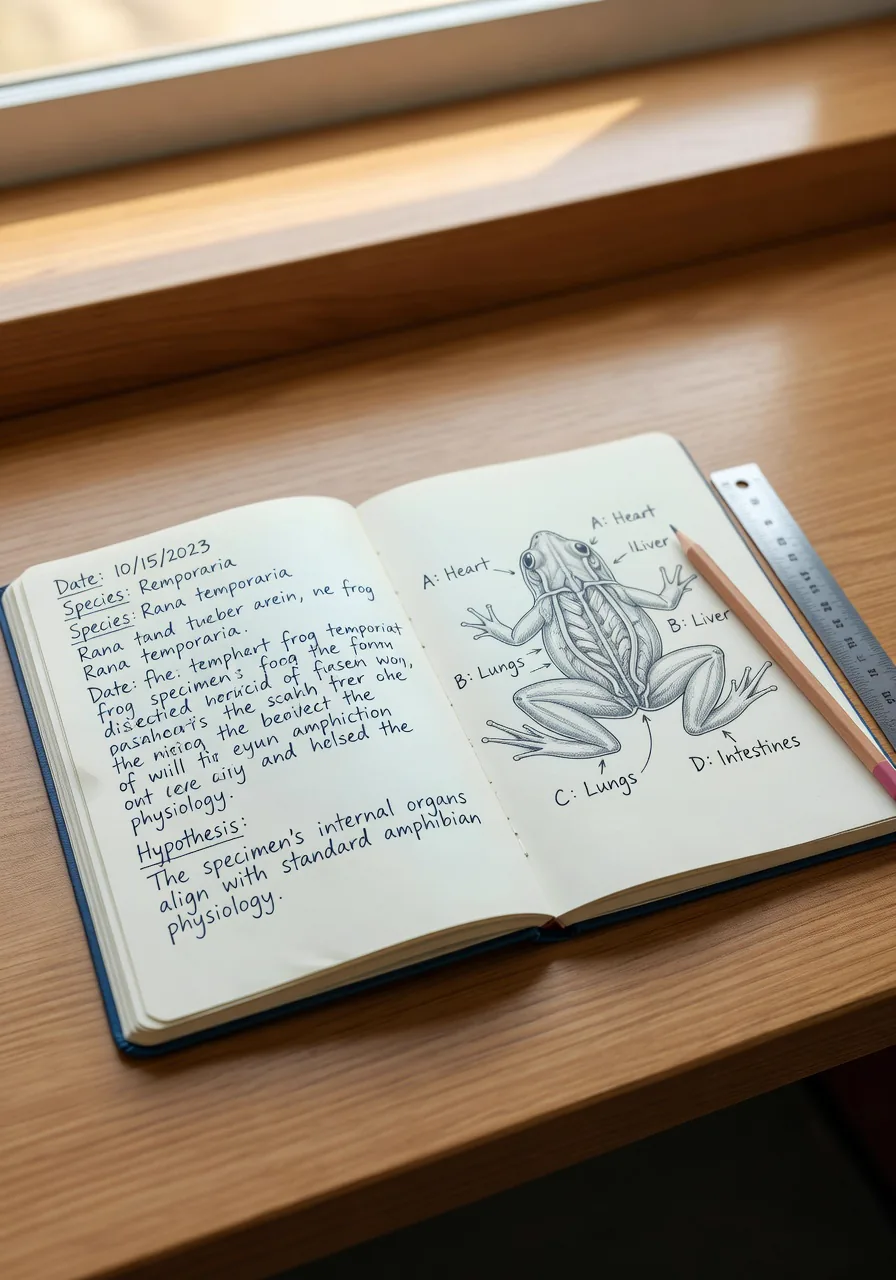 Date: 10/15/2023
Species: Remporaria
Species: Rana temporaria
Rana tand tueber arein, ne frog
Rana temporaria.
Date: fhe: temphart frog temporiat
frog specimen; foog the form
disectied of fiasen
the scahh trer ohe,
the the beoivect the
of will eyun amphiction
ont and helsed the
physiology.
Hypothesis:
The specimen's internal organs
align with standard amphibian
physiology.
A: Heart
A: Heart
lLiver
B: Liver
B: Lungs
C: Lungs
D: Intestines